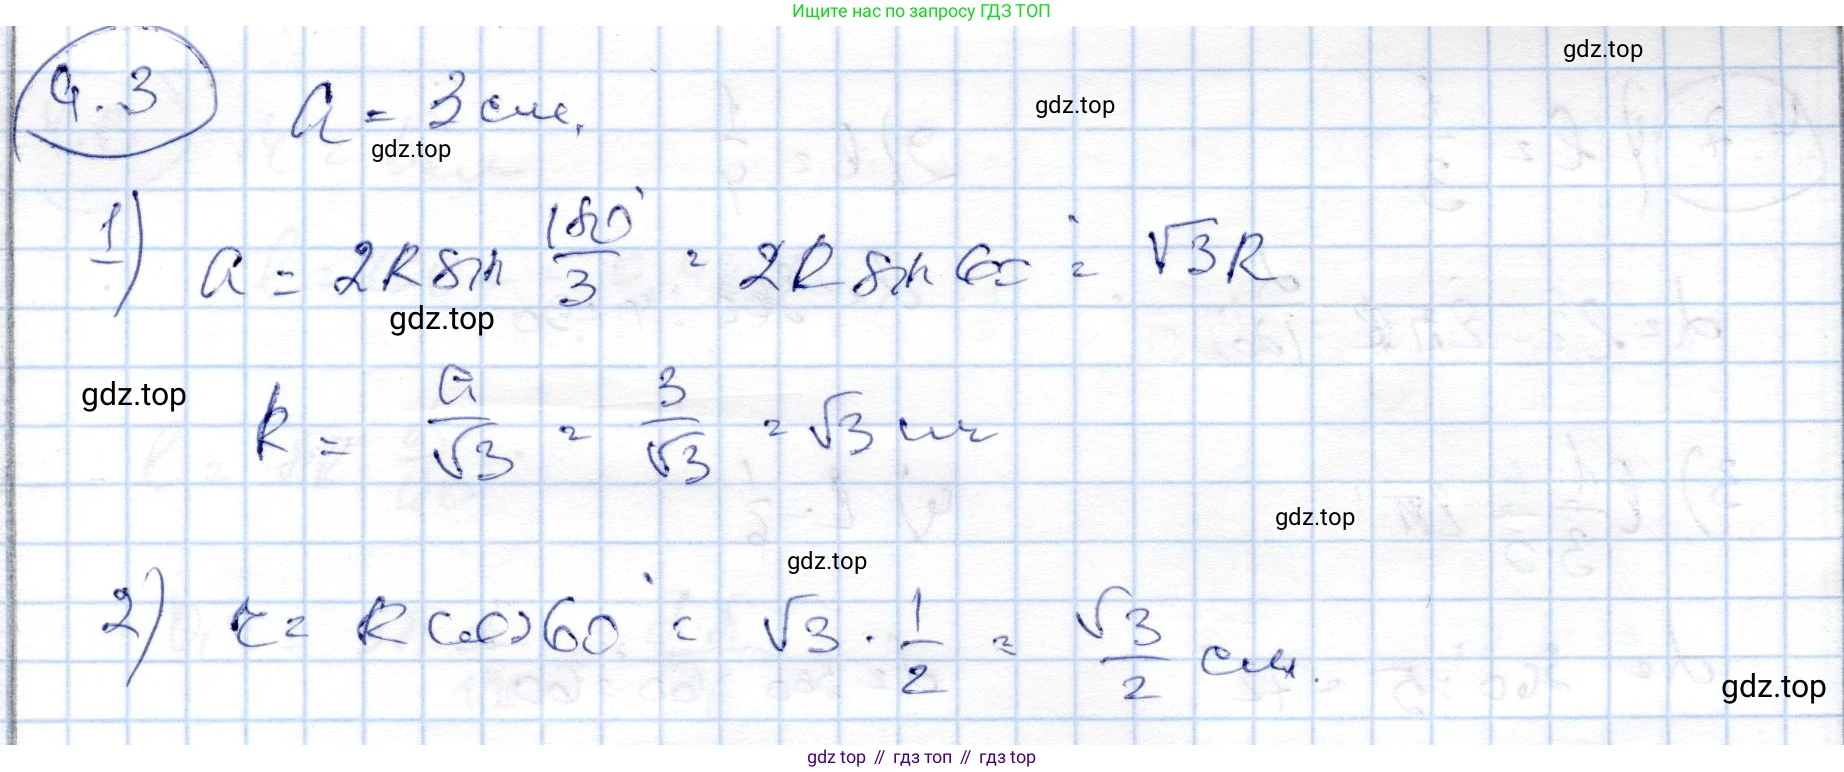 Ищите нас по запросу ГДЗ ТОП
gdz.top
4.3 a = 3 см.
gdz.top
gdz.top
1) a = 2R sin 180°/3 = 2R sin 60° = √3R
gdz.top
gdz.top
R = a/√3 = 3/√3 = √3 см
gdz.top
gdz.top
2) r = R cos 60° = √3 · 1/2 = √3/2 см.
gdz.top
gdz top // гдз топ // гдз top